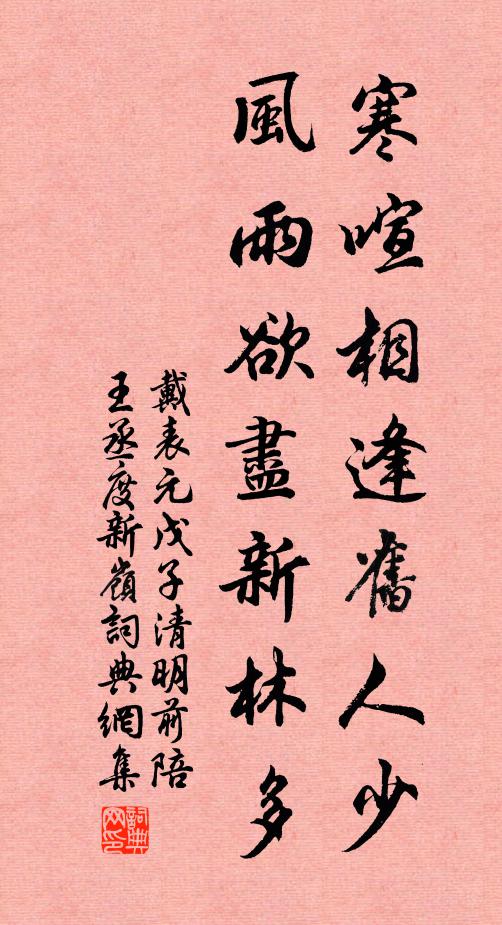 寒喧相逢舊人少
風雨欲盡新林多
戴表元戊子清明前陪
王丞度新嶺詞典網集
詞典网印